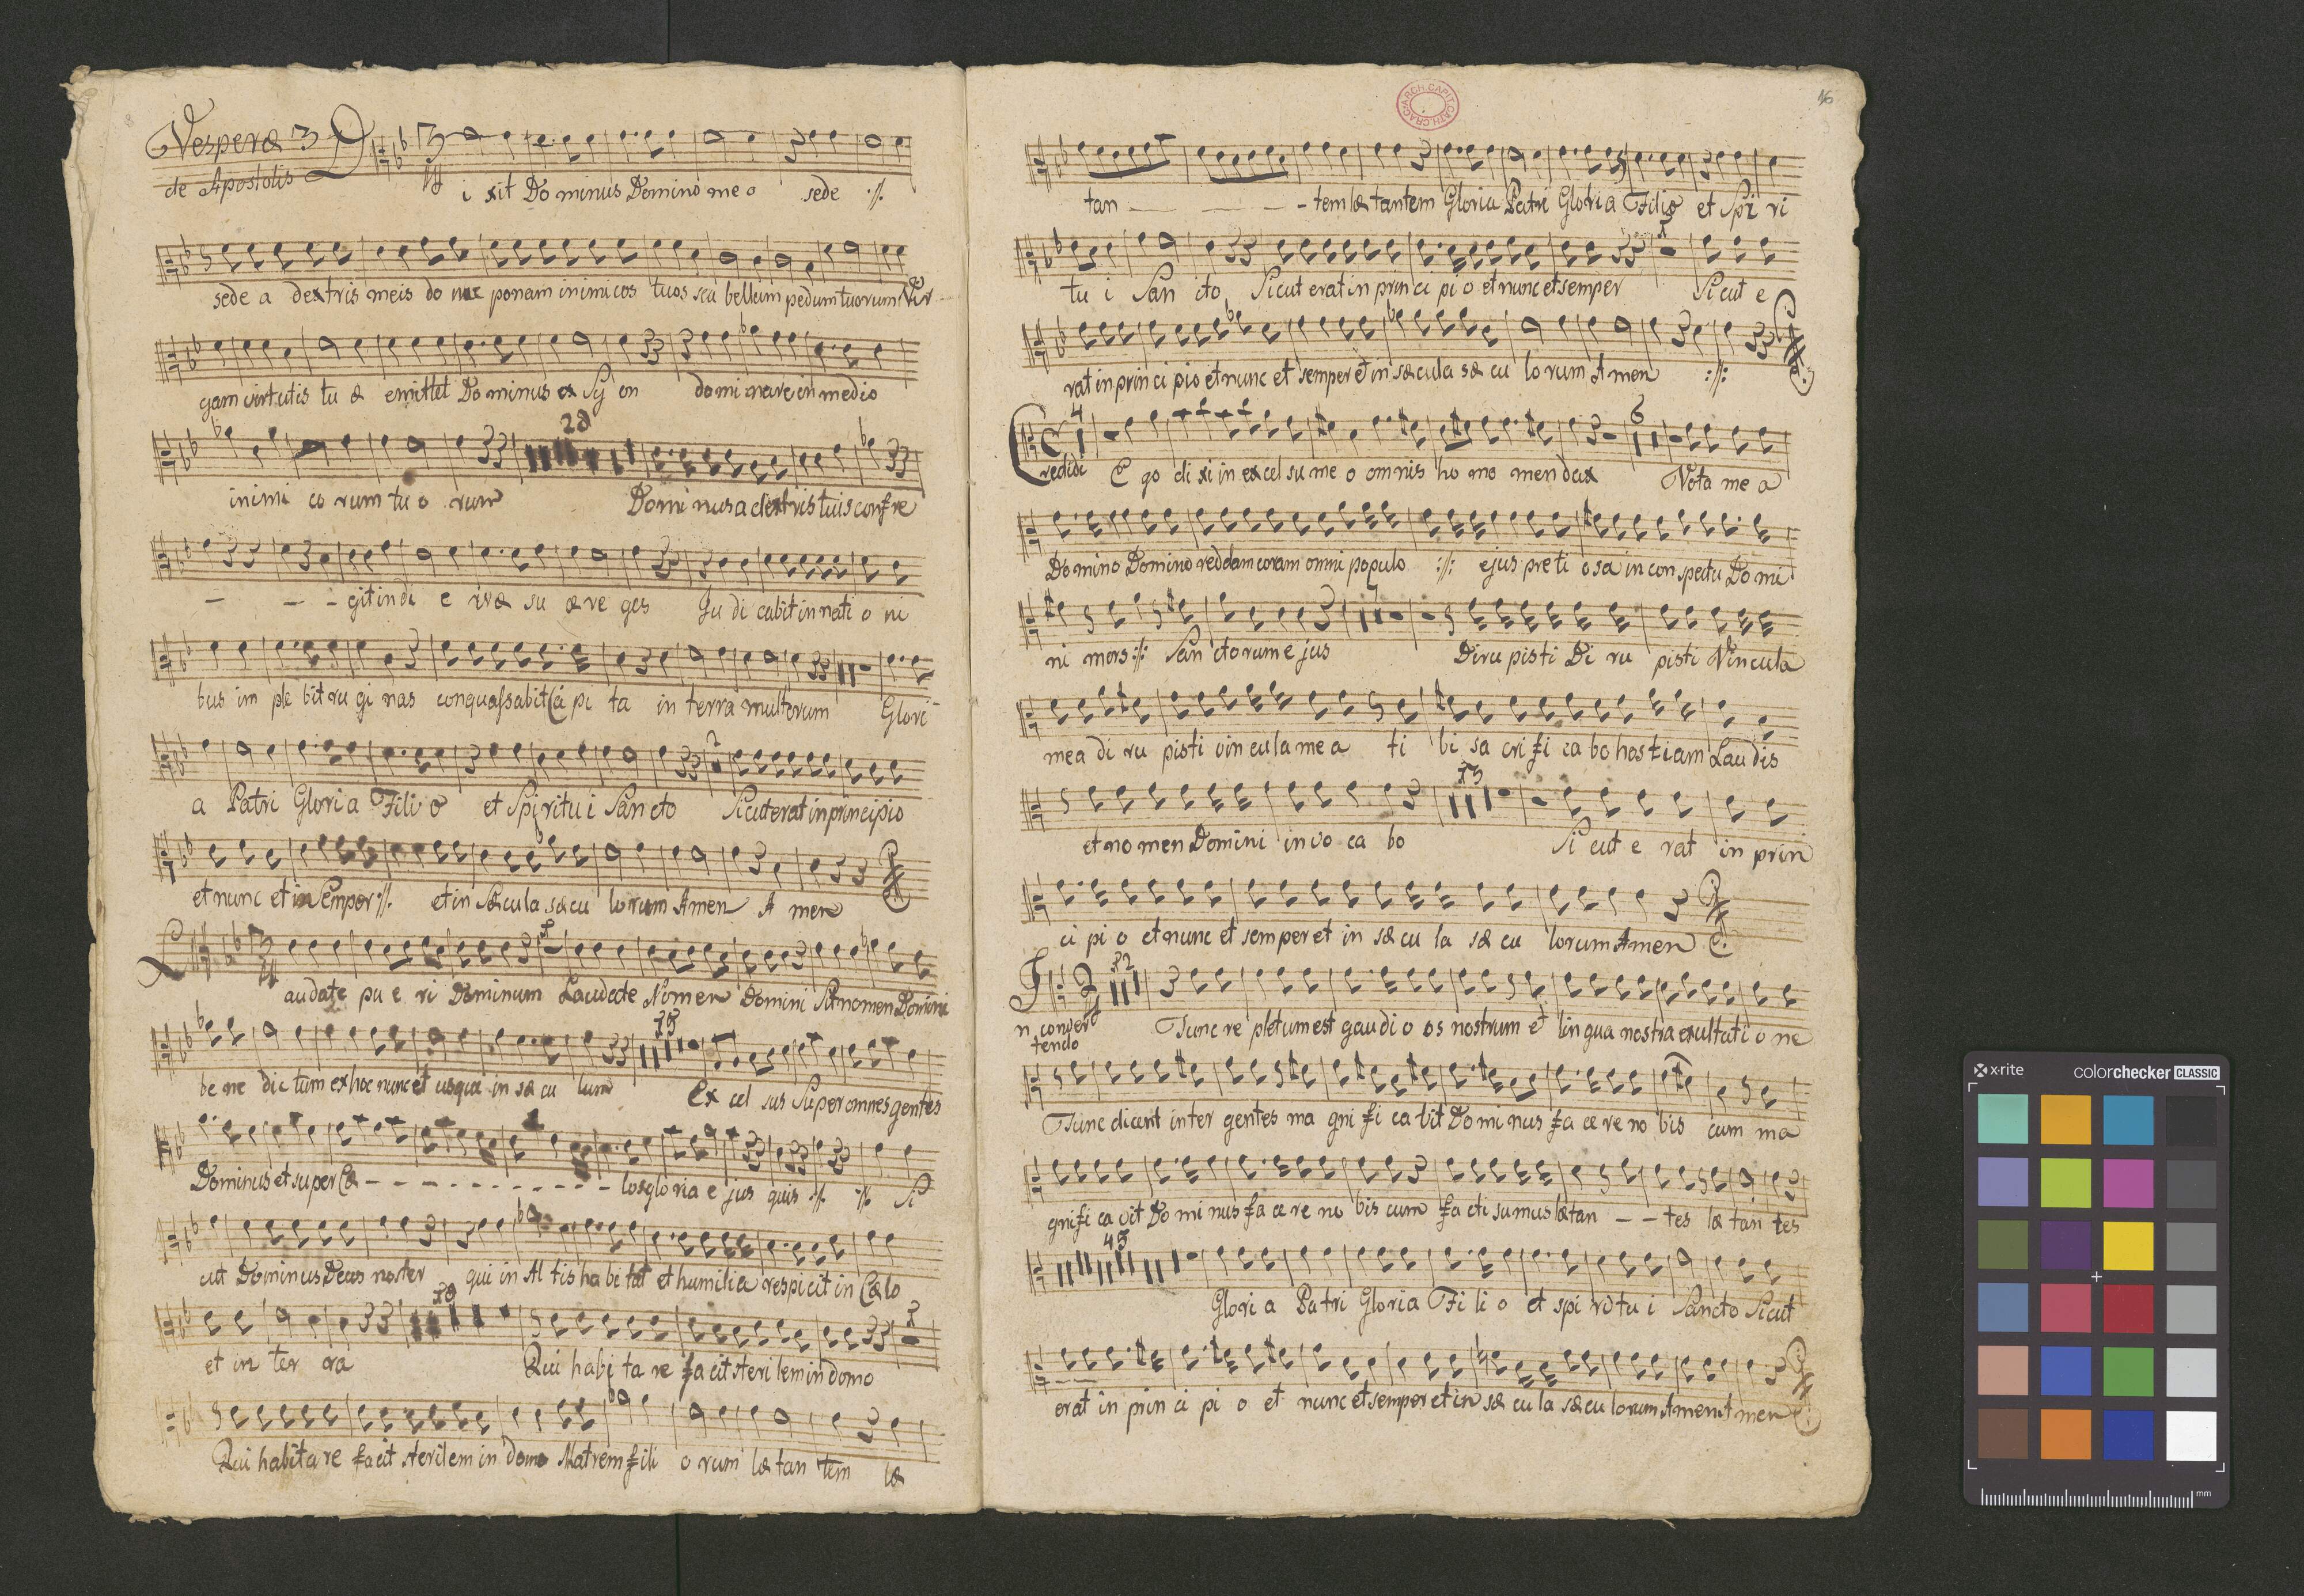 Vesperæ 3
de Apostolis
D
i xit Do minus Domino me o sede ·//.
sede a dextris meis do nec ponam inimicos tuos sca bellum pedum tuorum Vir
gam virtutis tu æ emittet Do minus ex Sy on do mi nare in medio
28
inimi co rum tu o rum Domi nus a dextris tuis confre
- - - git in di e iræ su æ re ges Ju di cabit in nati o ni
bus im ple bit ru gi nas conquassabit Ca pi ta in terra multorum Glori
2
a Patri Gloria Filio et Spiritu i Sancto Sicut erat in principio
et nunc et in semper ·//. et in Sæcula sæcu lorum Amen A men
L
audate pu e ri Dominum Laudate Nomen Domini Sit nomen Domini
15
be ne dic tum ex hoc nunc et usque in sæ cu lum Ex cel sus Super omnes gentes
Dominus et super Cæ - - - - - - - - - - los gloria e jus quis ·//. ·//. Si
cut Dominus Deus noster qui in Al tis ha bi tat et humilia respicit in Cælo
18
et in ter ra Qui habi ta re facit sterilem in domo
Qui habitare facit sterilem in domo Matrem fili o rum læ tan tem læ
16
ARCH. CAPIT. CATH. CRAC.
tan - - - tem læ tantem Gloria Patri Gloria Filio et Spi ri
tu i San cto Sicut erat in prin ci pi o et nunc et semper Sicut e
rat in prin ci pio et nunc et semper et in sæcula sæ cu lo rum Amen ://:
4 6
C redidi Ego di xi in ex cel su me o omnis ho mo men dax Vota me a
Domino Domino reddam coram omni populo ://: ejus preti osa in conspectu Do mi
7
ni mors ://: San ctorum e jus Diru pisti Di ru pisti Vincula
mea di ru pisti vin cula me a ti bi sa cri fi ca bo hostiam Laudis
13
et no men Domini in vo ca bo Si cut e rat in prin
ci pi o et nunc et semper et in sæ cu la sæ cu lorum Amen
12
In convertendo Tunc re pletum est gaudi o os nostrum et lin gua nostra exultati o ne
Tunc dicent inter gentes ma gni fi ca vit Do mi nus fa ce re no bis cum ma
gnifi ca vit Do mi nus fa ce re no bis cum fa cti sumus lætan - - tes læ tan tes
43
Glori a Patri Gloria Fi li o et spi ri tu i Sancto Sicut
erat in prin ci pi o et nunc et semper et in sæ cu la sæcu lorum Amen A men
x·rite
colorchecker CLASSIC
mm